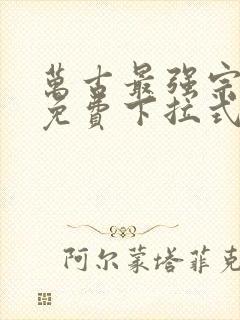 萬古最强宗
免費下拉式
阿尔蒙塔菲克